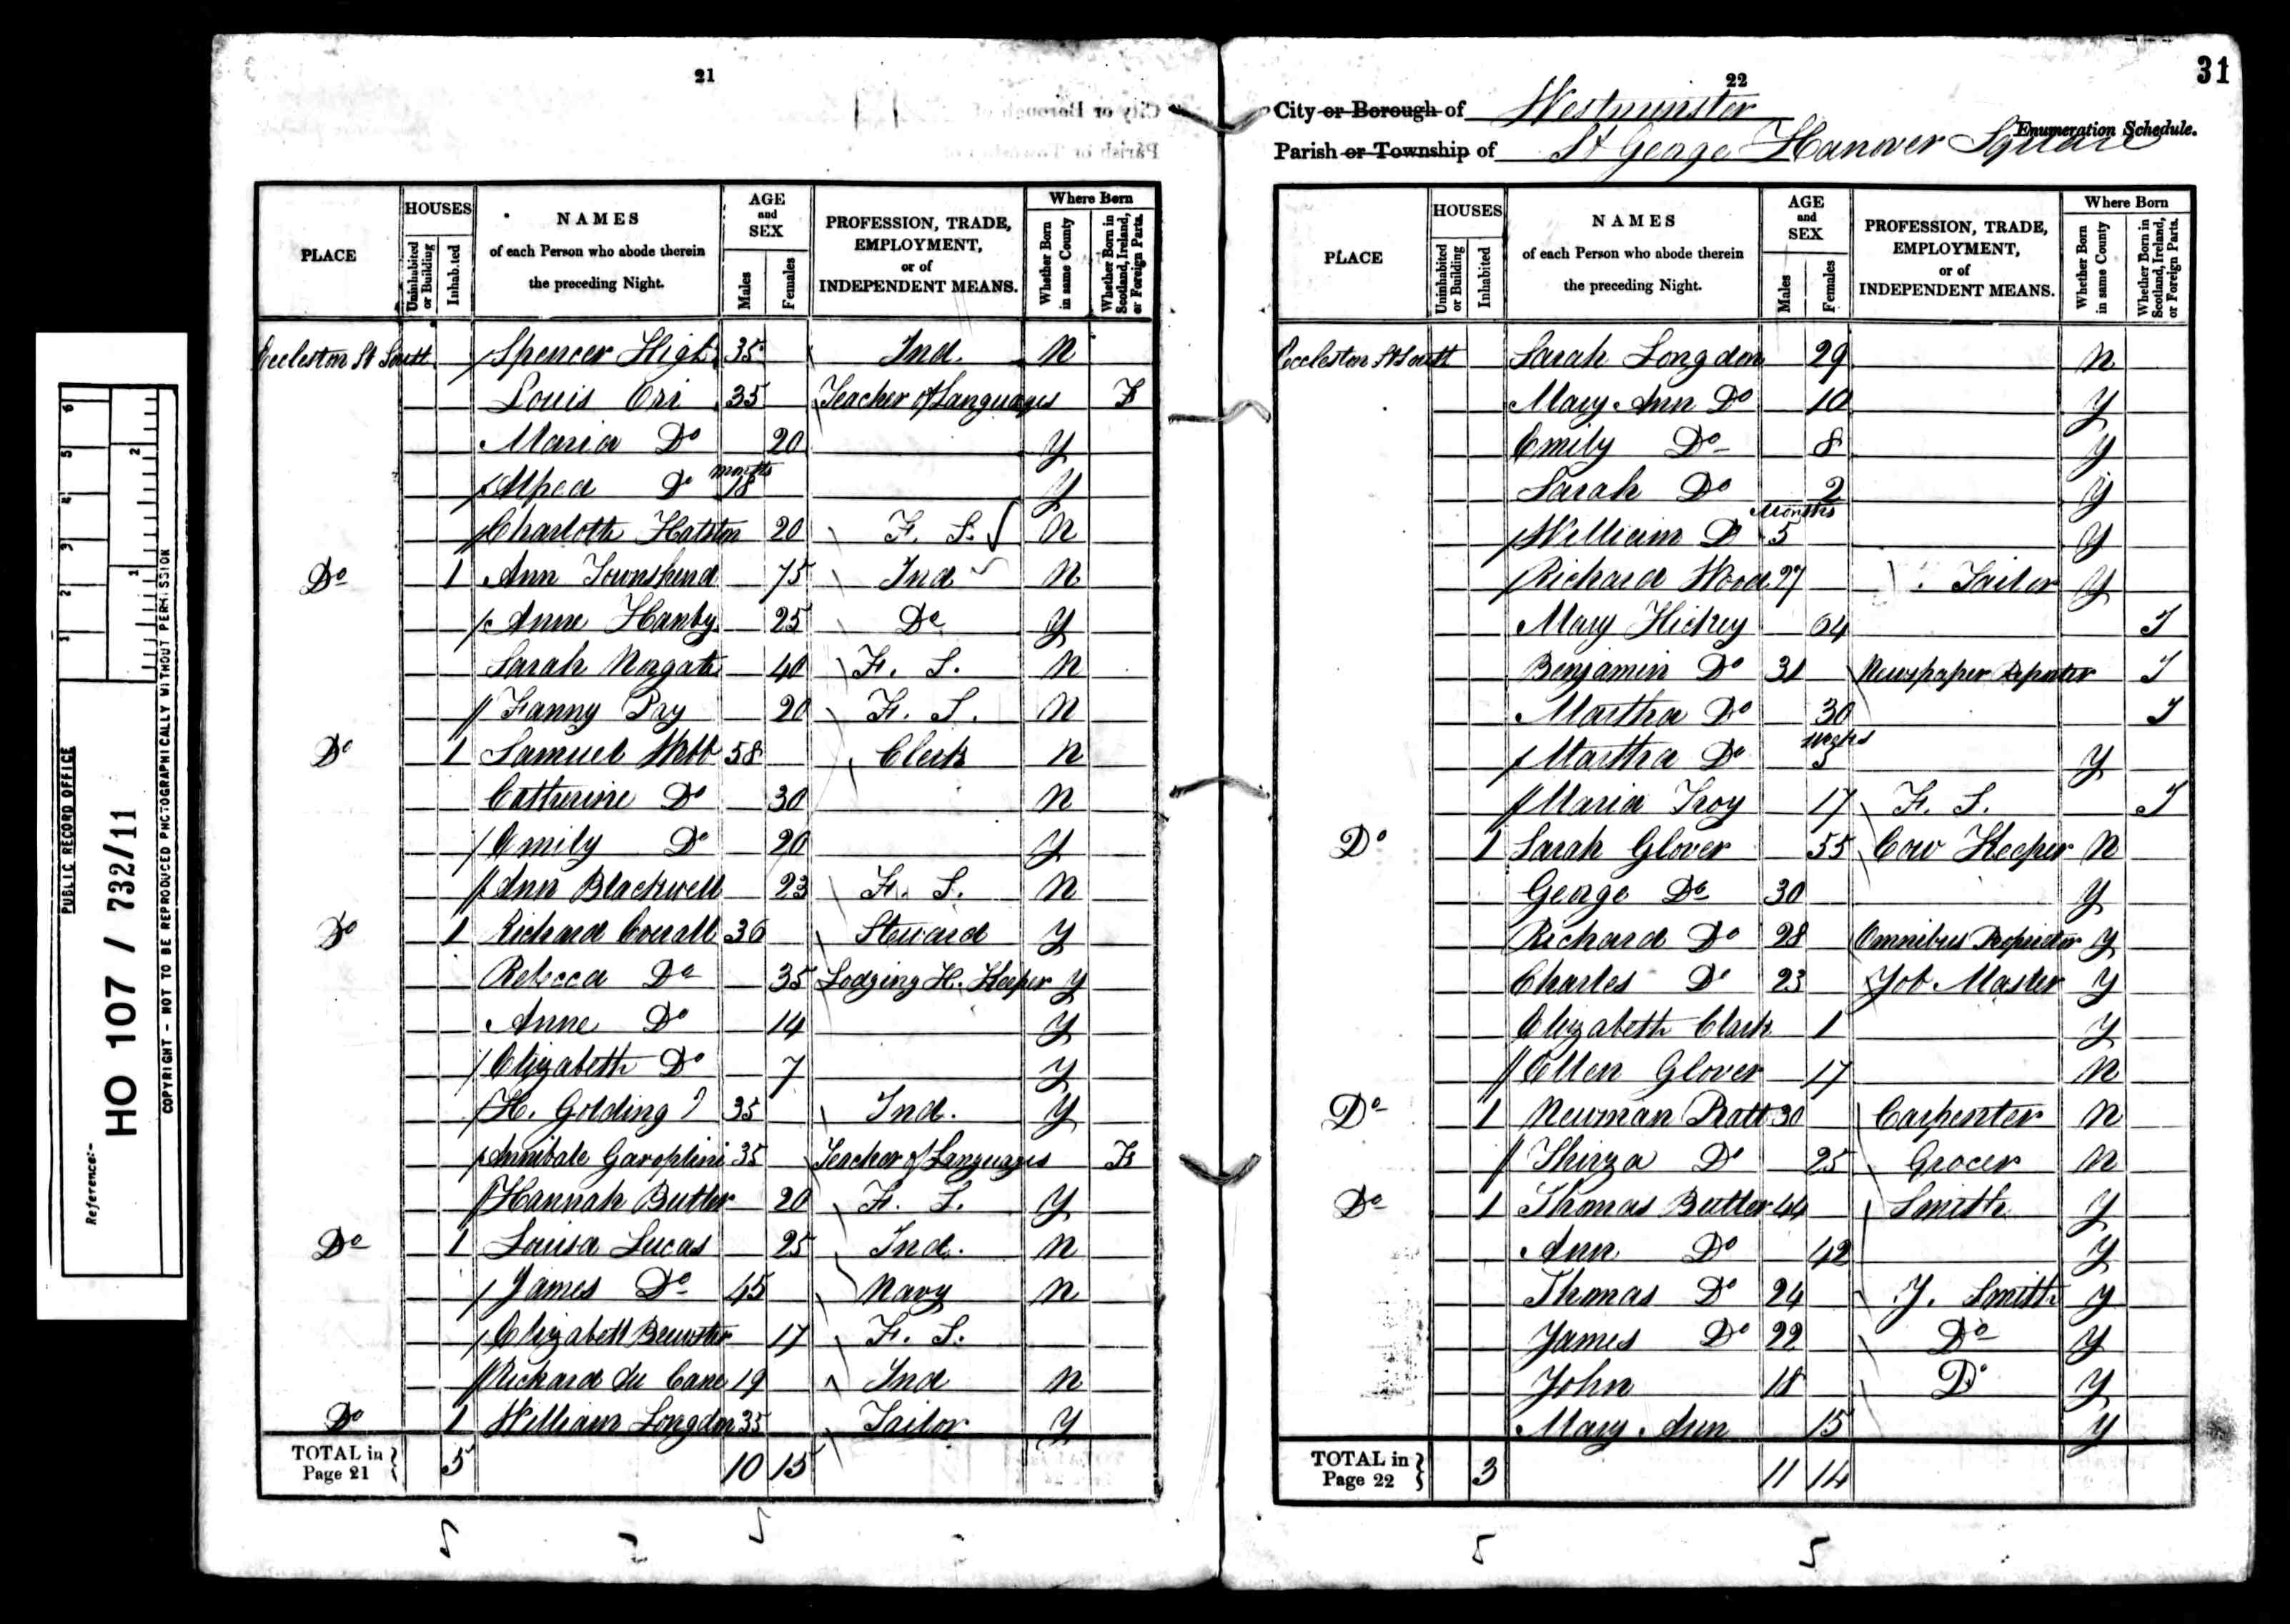 21
HOUSES
AGE
and
SEX
Where Born
PLACE
Uninhabited or Building
Inhabited
NAMES
of each Person who abode therein
the preceding Night.
Males
Females
PROFESSION, TRADE,
EMPLOYMENT,
or of
INDEPENDENT MEANS.
Whether Born in same County
Whether Born in Scotland, Ireland, or Foreign Parts.
Eccleston St South Spencer High 35 Ind. N
Louis Ori 35 Teacher of Languages F
Maria Do 20 Y
months
Alfred Do 18 Y
Charlotte Hatston 20 F. S. N
Do 1 Ann Townshend 75 Ind N
Anne Hanby 25 Do Y
Sarah Norgate 40 F. S. N
Fanny Pry 20 F. S. N
Do 1 Samuel Webb 58 Clerk N
Catherine Do 30 N
Emily Do 20 Y
Ann Blackwell 23 F. S. N
Do 1 Richard Overall 36 Steward Y
Rebecca Do 35 Lodging H. Keeper Y
Anne Do 14 Y
Elizabeth Do 7 Y
H. Golding ? 35 Ind. Y
Annibale 35 Teacher of Languages F
Hannah Butler 20 F. S. Y
Do 1 Louisa Lucas 25 Ind. N
James Do 45 Navy N
Elizabeth Brewster 17 F. S.
Richard du Cane 19 Ind N
Do 1 William Longdon 35 Tailor Y
TOTAL in
Page 21 } 5 10 15
22
31
City or Borough of Westminster
Enumeration Schedule.
Parish or Township of St George Hanover Square
HOUSES
AGE
and
SEX
Where Born
PLACE
Uninhabited or Building
Inhabited
NAMES
of each Person who abode therein
the preceding Night.
Males
Females
PROFESSION, TRADE,
EMPLOYMENT,
or of
INDEPENDENT MEANS.
Whether Born in same County
Whether Born in Scotland, Ireland, or Foreign Parts.
Eccleston St South Sarah Longdon 29 N
Mary Ann Do 10 Y
Emily Do 8 Y
Sarah Do 2 Y
Months
William D 5 Y
Richard Wood 27 Tailor Y
Mary Hickey 64 I
Benjamin Do 31 Newspaper Reporter I
Martha Do 30 I
weeks
Martha Do 3 Y
Maria Troy 17 F. S. I
Do 1 Sarah Glover 55 Cow Keeper N
George Do 30 Y
Richard Do 28 Omnibus Proprietor Y
Charles Do 23 Job Master Y
Elizabeth Clark 1 Y
Ellen Glover 17 N
Do 1 Newman Pratt 30 Carpenter N
Thirza Do 25 Grocer N
Do 1 Thomas Butler 44 Smith Y
Ann Do 42 Y
Thomas Do 24 J. Smith Y
James Do 22 Do Y
John 18 Do Y
Mary Ann 15 Y
TOTAL in
Page 22 } 3 11 14
PUBLIC RECORD OFFICE
1 2 3 4 5 6
1 2
Reference:-
HO 107 / 732/11
COPYRIGHT - NOT TO BE REPRODUCED PHOTOGRAPHICALLY WITHOUT PERMISSION